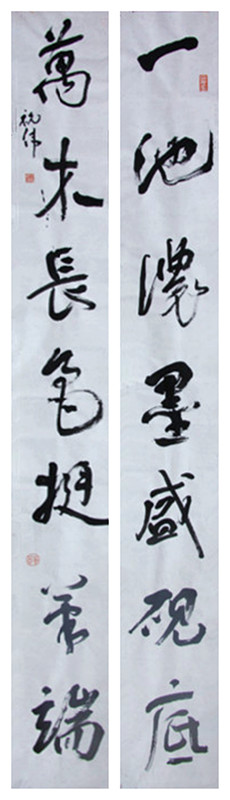 一池濃墨盛硯底
萬木長毫挺筆端
祝伟